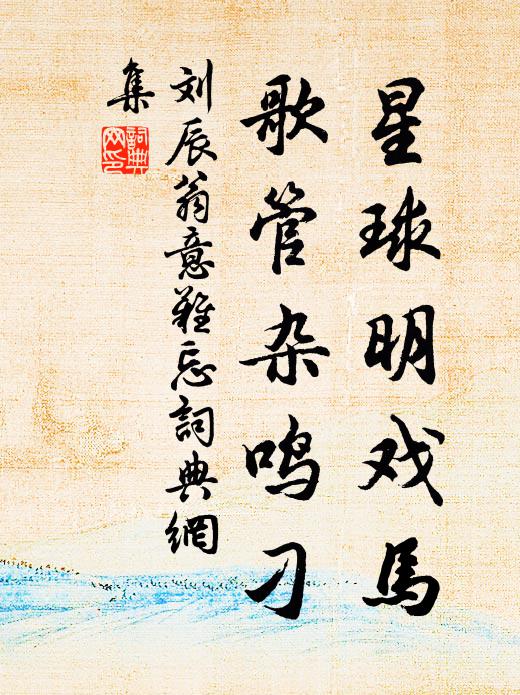 星球明戏馬
歌管杂鸣刁
刘辰翁意难忘詞典網
集
詞典
网印